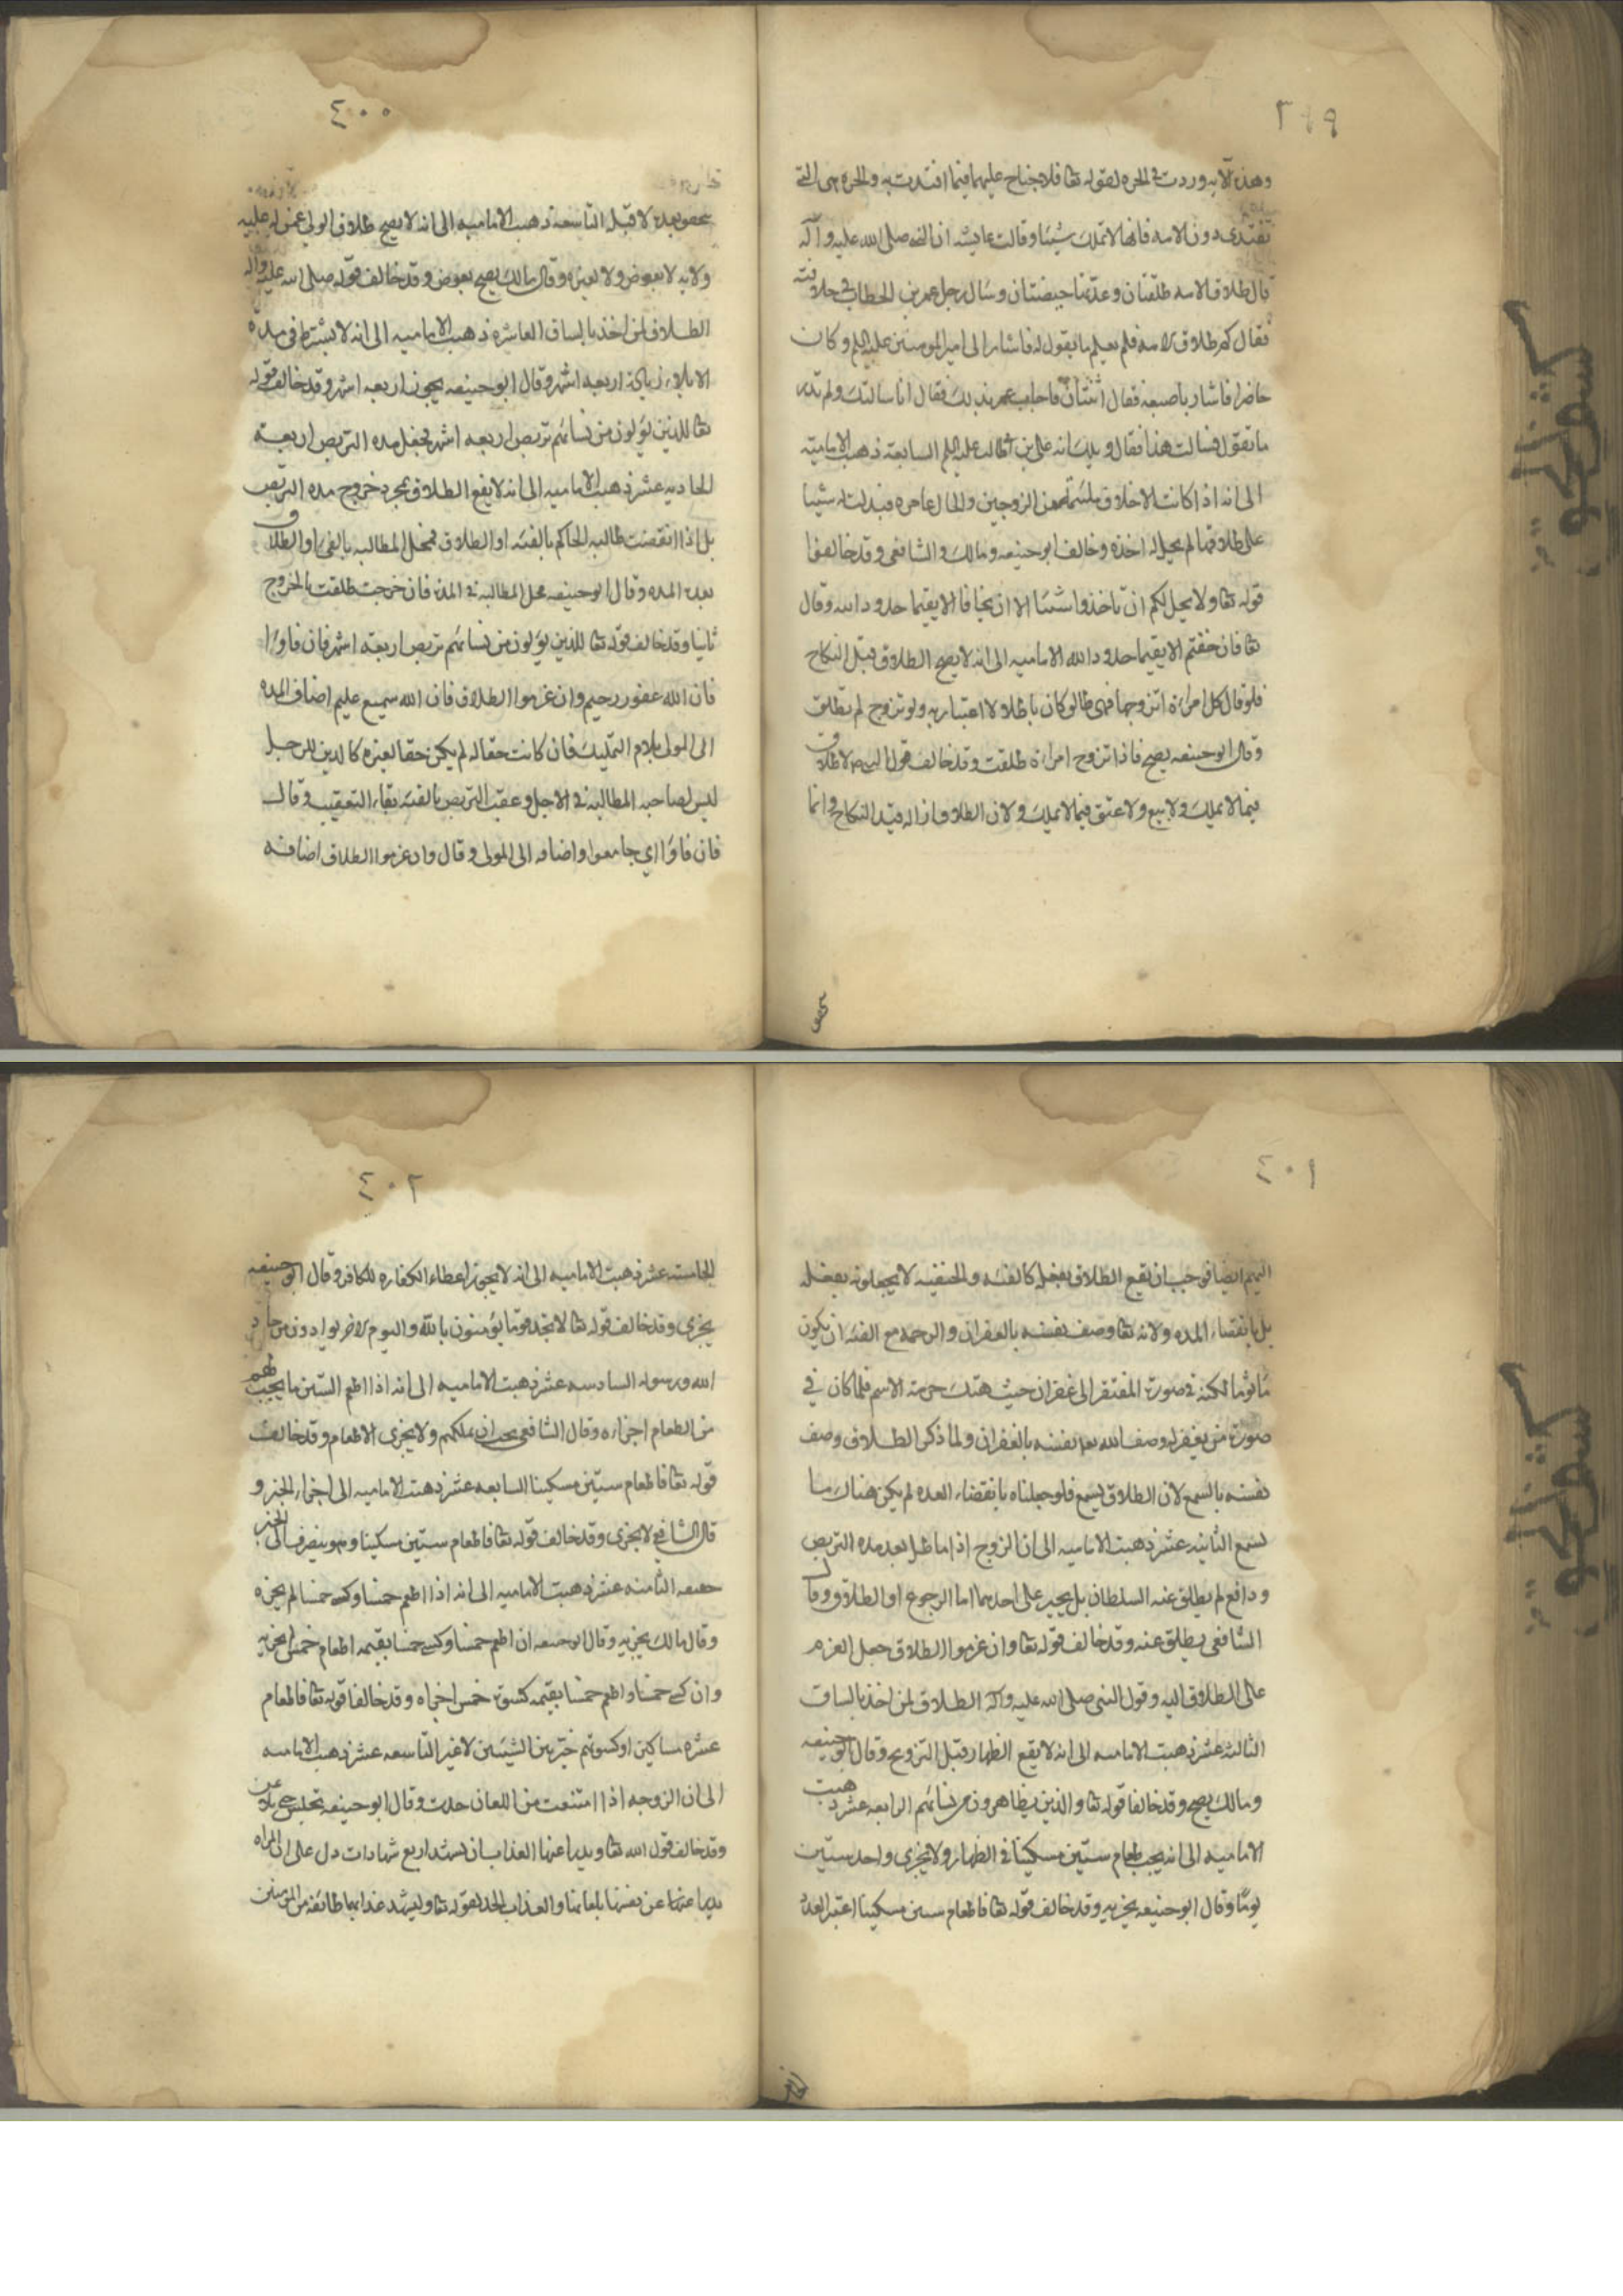 ٣٩٩
وهذه الآية وردت في الحرة لقوله تعا فلا جناح عليهما فيما افتدت به والحرة هي التي
تفتدى دون الامه فانها لا تملك شيئا وقالت عايشه ان النبي صلى الله عليه وآله
قال طلاق الامه طلقتان وعدتها حيضتان وسال رجل عمر بن الخطاب في خلافته
فقال كم طلاق الامه فلم يعلم ما يقول له فاشار الى امير المومنين عليه السلم وكان
حاضرا فاشار باصبعه فقال اثنتان فاجاب عمر بذلك فقال انا سالتك ولم تدر
ما تقول فسالت هذا فقال ويلك انه على بن ابي طالب عليه السلم السابعة ذهبت الامامية
الى انه اذا كانت الاخلاق ملتئمة بين الزوجين والحال عامره فبذلت له شيئا
على طلاقها لم يحل له اخذه وخالف ابو حنيفه ومالك والشافعى وقد خالفوا
قوله تعا ولا يحل لكم ان تاخذوا شيئا الا ان يخافا الا يقيما حدود الله وقال
تعا فان خفتم الا يقيما حدود الله الاماميه الى انه لا يصح الطلاق قبل النكاح
فلو قال كل امراة اتزوجها فهى طالق كان باطلا ولا اعتبار به ولو تزوج لم تطلق
وقال ابو حنيفه يصح فاذا تزوج امراة طلقت وقد خالف قول النبي ص لا طلاق
فيما لا يملك ولا بيع ولا عتق فيما لا يملك ولان الطلاق ازاله قيد النكاح وانما
٤٠٠
يتحقق بعده لا قبله التاسعة ذهبت الاماميه الى انه لا يصح طلاق الولي عمن له عليه
ولايه لا بعوض ولا بغيره وقال مالك يصح بعوض وقد خالف قوله صلى الله عليه واله
الطلاق لمن اخذ بالساق العاشره ذهبت الاماميه الى انه لا يشترط في مدة
الايلاء زيادة اربعه اشهر وقال ابو حنيفه يجوز اربعه اشهر وقد خالف قوله
تعا للذين يؤلون من نسائهم تربص اربعه اشهر فجعل مده التربص اربعة
الحاديه عشر ذهبت الاماميه الى انه لا يقع الطلاق بمجرد خروج مده التربص
بل اذا انقضت طالبه الحاكم بالفئه او الطلاق فمحل المطالبه بالفئ او الطلاق
بعد المده وقال ابو حنيفه محل المطالبه في المدة فان خرجت طلقت بالخروج
ثانيا وقد خالف قوله تعا للذين يؤلون من نسائهم تربص اربعة اشهر فان فاؤا
فان الله غفور رحيم وان عزموا الطلاق فان الله سميع عليم اضاف المده
الى المولى بلام التمليك فان كانت حقا له لم يكن حقا لغيره كالدين للرجل
ليس لصاحبه المطالبه في الاجل وعقب التربص بالفئه بفاء التعقيب وقال
فان فاؤا اي جامعوا واضافه الى المولى وقال وان عزموا الطلاق اضافه
٤٠١
اليهم ايضا فوجب ان يقع الطلاق بفعله كالفئه والحنفيه لا يجعلونه بفعله
بل بانقضاء المده ولانه تعا وصف نفسه بالغفران والرحمه مع الفئه ان يكون
مأثوما لكنه في صورة المفتقر الى غفران حيث هتك حرمة الاسم فلما كان في
صورة من يغفر له وصف الله تعا نفسه بالغفران ولما ذكر الطلاق وصف
نفسه بالسمع لان الطلاق يسمع فلو جعلناه بانقضاء العده لم يكن هناك ما
يسمع الثانيه عشر ذهبت الاماميه الى ان الزوج اذا ماطل بعد مده التربص
ودافع لم يطلق عنه السلطان بل يجبر على احدهما اما الرجوع او الطلاق وقال
الشافعى يطلق عنه وقد خالف قوله تعا وان عزموا الطلاق جعل العزم
على الطلاق اليه وقول النبى صلى الله عليه وآله الطلاق لمن اخذ بالساق
الثالثه عشر ذهبت الاماميه الى انه لا يقع الظهار قبل التزويج وقال ابو حنيفه
ومالك يصح وقد خالفا قوله تعا والذين يظاهرون من نسائهم الرابعه عشر ذهبت
الاماميه الى انه يجب اطعام ستين مسكينا في الظهار ولا يجزى واحد ستين
يوما وقال ابو حنيفه يجزيه وقد خالف قوله تعا فاطعام ستين مسكينا اعتبر العدد
٤٠٢
الخامسه عشر ذهبت الاماميه الى انه لا يجوز اعطاء الكفاره للكافر وقال ابو حنيفه
يجزى وقد خالف قوله تعا لا تجد قوما يؤمنون بالله واليوم الاخر يوادون من حاد
الله ورسوله السادسه عشر ذهبت الاماميه الى انه اذا اطعم الستين ما يجب لهم
من الطعام اجزاه وقال الشافعى يجب ان يملكهم ولا يجزى الاطعام وقد خالف
قوله تعا فاطعام ستين مسكينا السابعه عشر ذهبت الاماميه الى اجزاء الخبز و
قال الشافعي لا يجزى وقد خالف قوله تعا فاطعام ستين مسكينا وهو ينصرف الى الخبز
حقيقه الثامنه عشر ذهبت الاماميه الى انه اذا اطعم خمسا وكسى خمسا لم يجزه
وقال مالك يجزيه وقال ابو حنيفه ان اطعم خمسا وكسى خمسا بقيمه اطعام خمس لم يجزيه
وان كسى خمسا واطعم خمسا بقيمه كسوة خمس اجزاه وقد خالفا قوله تعا فاطعام
عشره مساكين او كسوتهم خير بين الشيئين لا غير التاسعه عشر ذهبت الاماميه
الى ان الزوجه اذا امتنعت من اللعان حدت وقال ابو حنيفه تحبس حتى تلاعن
وقد خالف قول الله تعا ويدرا عنها العذاب ان تشهد اربع شهادات دل على ان المراه
يدرا عنها عن نفسها بلعانها والعذاب الحد لقوله تعا وليشهد عذابهما طائفه من المؤمنين